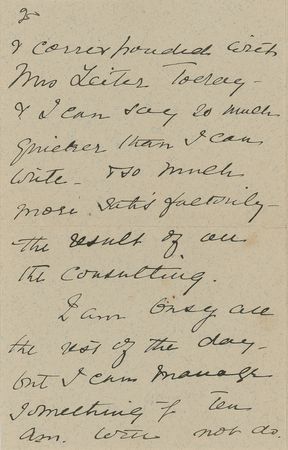 & corresponded with
Mrs Leiter Today -
& I can say so much
quicker than I can
write - & so much
more satisfactorily -
the result of all
the consulting.
I am busy all
the rest of the day -
but I can manage
something if ten
a.m. will not do.